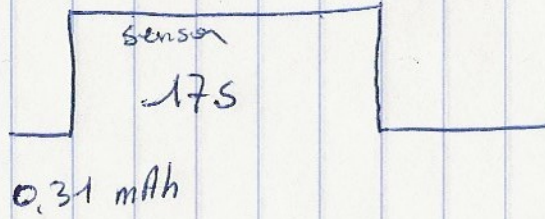 sensor
17s
0,31 mAh